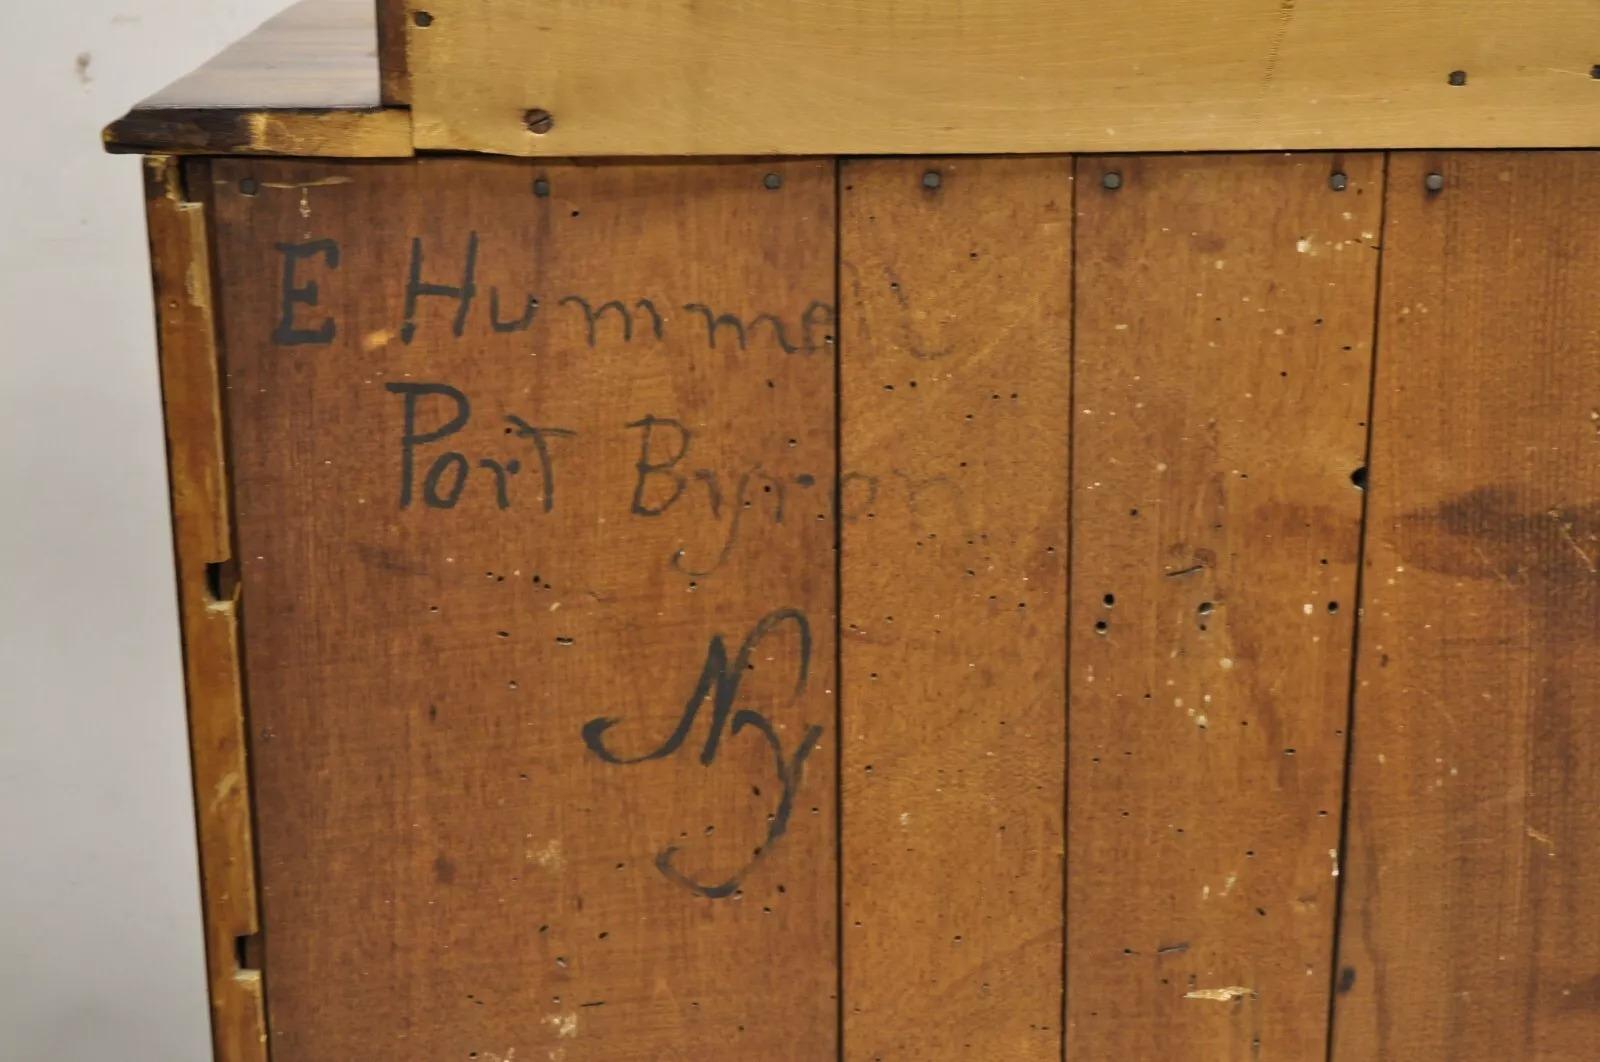 E Hummell
Port Byron
Ny